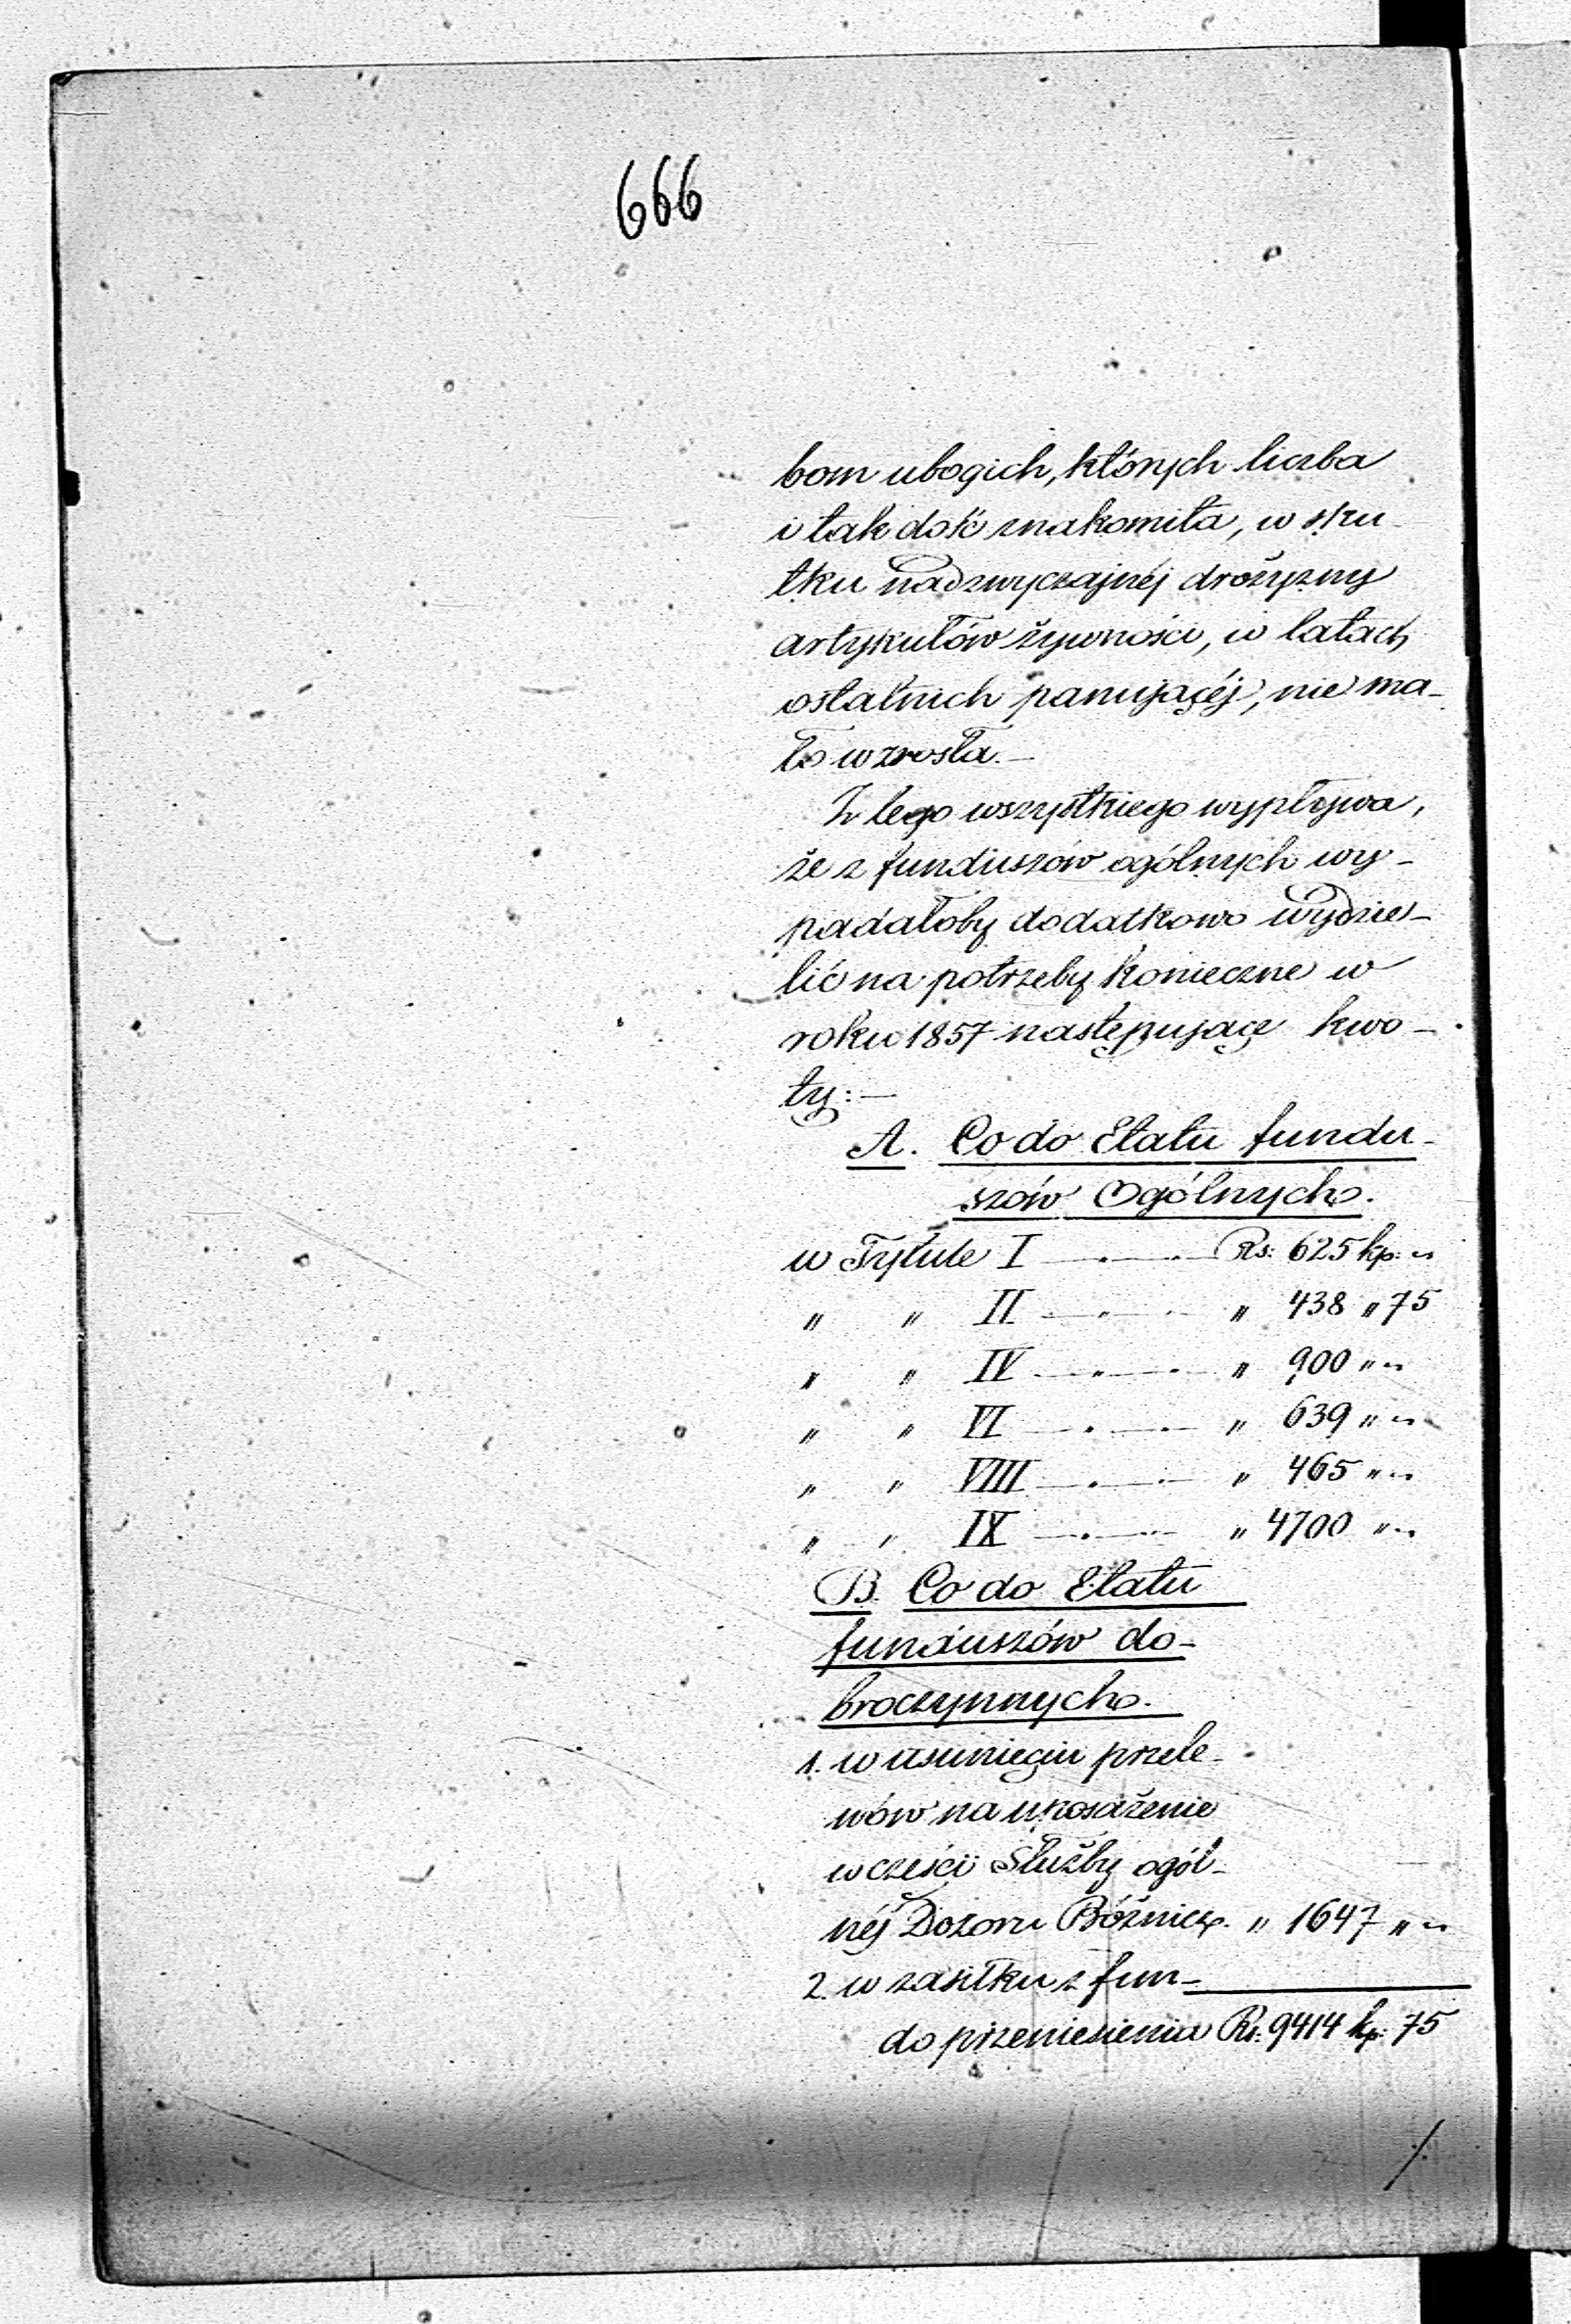 666
bom ubogich, których liczba
i tak dość znakomita, w sku-
tku nadzwyczajnéj drożyzny
artykułów żywności, w latach
ostatnich panującéj, nie ma-
ło wzrosła.—
Z tego wszystkiego wypływa,
że z funduszów ogólnych wy-
padałoby dodatkowo wydzie-
lić na potrzeby konieczne w
roku 1857 następujące kwo-
ty:—
A. Co do Etatu fundu-
szów Ogólnych.
w Tytule I — . — . — Rs: 625 kp: „
„ „ II — . — . — „ 438 „ 75
„ „ IV — . — . — „ 900 „ „
„ „ VI — . — . — „ 639 „ „
„ „ VIII — . — . — „ 465 „ „
„ „ IX — . — . — „ 4700 „ „
B. Co do Etatu
funduszów do-
broczynnych.
1. w usunięciu przele-
wów na uposażenie
w części Służby ogól-
néj Dozoru Bóżnicz. „ 1647 „ „
2. w zasiłku z fun-
do przeniesienia Rs: 9414 kp: 75
./.